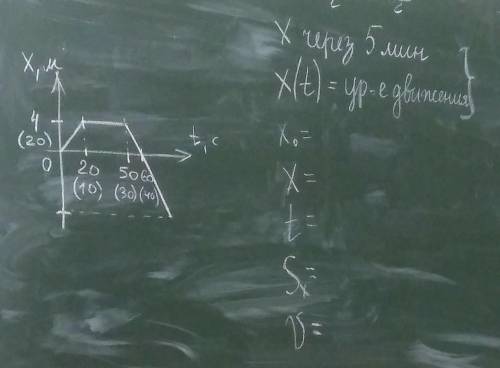 X, м
4
(20)
0
20
(10)
50
(30)
60
(40)
t, с
X через 5 мин
X(t) = ур-е движения
X₀ =
X =
t =
Sₓ =
V =